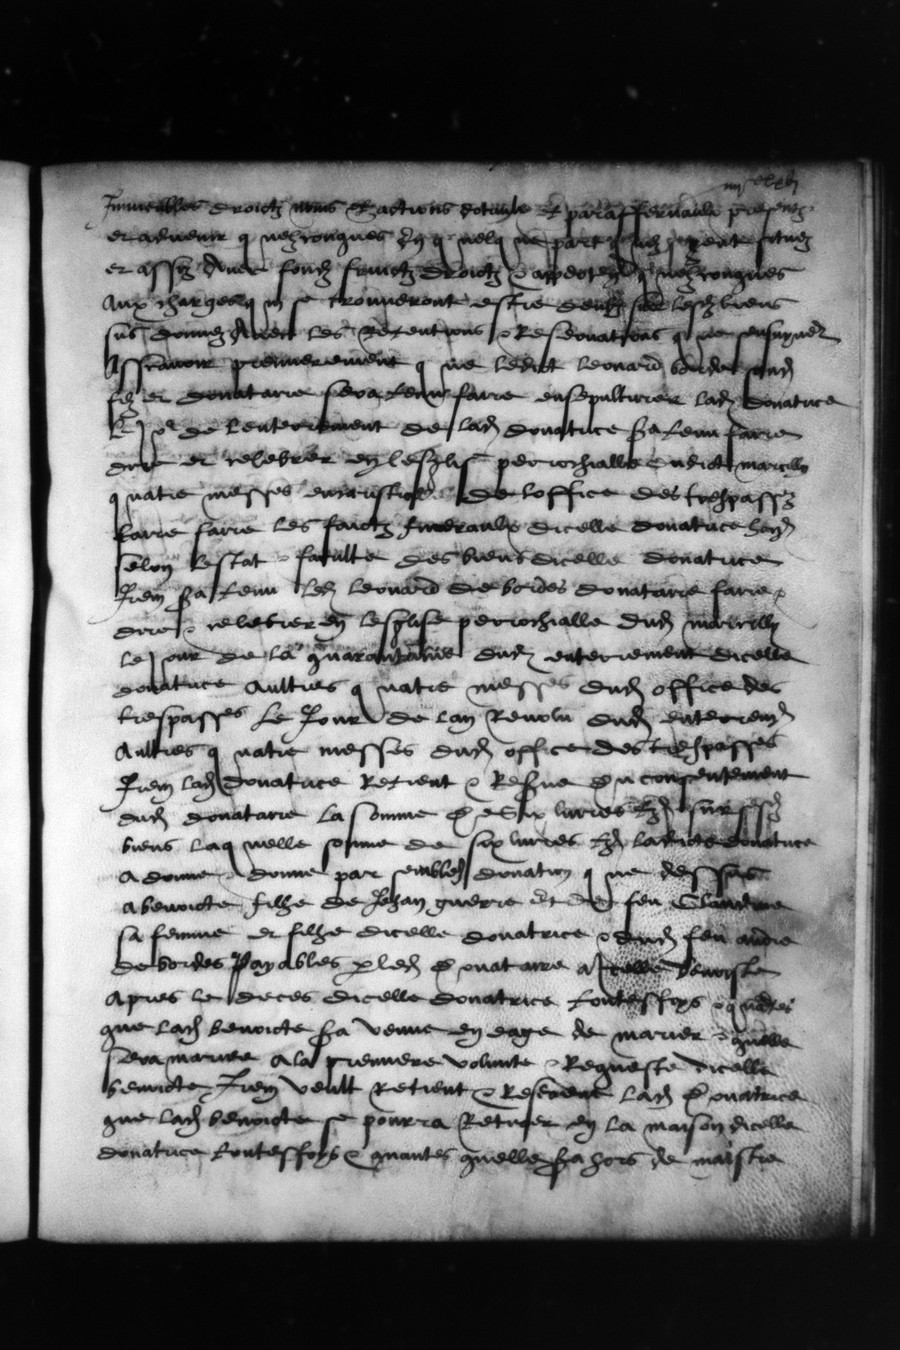 Immeubles droictz noms & actions dotaulx & paraffernaulx presentz
et advenir quelzconques
et assiz Avec fondz fruictz droictz & appertenances quelzconques
Aux charges qui se trouveront estre deuhz sur lesd biens
sus donnez Avec les retentions & Reservations que ne ensuyvent
Assavoir premierement que ledict Leonard bordes sond
filz et donataire sera tenu faire ensepulturer lad donatrice
Le Jour de lenterrement de lad donatrice sera tenu faire
dire et celebrer en lesglise perrochialle dudict marcilly
quatre messes de loffice des trespassez
faire faire les faictz funeraulx dicelle donatrice
selon lestat & faculte des biens dicelle donatrice
Item sera tenu led Leonard de bordes donataire faire &
dire & celebrer en lesglise perrochialle dud marcilly
le Jour de la quarantaine dud enterrement dicelle
donatrice Aultres quatre messes dud office des
trespasses Le Jour de lan Revolu dud enterrement
Aultres quatre messes dud office des trespasses
Item lad donatrice Retient & Reserve du consentement
dud donataire La Somme de Six livres tz sur sesd
biens laquelle somme de six livres tz ladicte donatrice
a donne & donne par semblable donation que dessus
a benoicte filhe de Jehan guerre et de feu Claudine
sa femme et filhe dicelle donatrice & dud feu andre
de bordes Payables par led donataire a Icelle benoiste
Apres le deces dicelle donatrice toutesfoys
que lad benoicte sera venue en eage de marier & quelle
sera mariee A la premiere volunte & Requeste dicelle
benoicte Item veult retient & Reserve lad donatrice
que lad benoicte se pourra Retirer en la maison dicelle
donatrice toutesfoys & quantes quelle sera hors de maistre